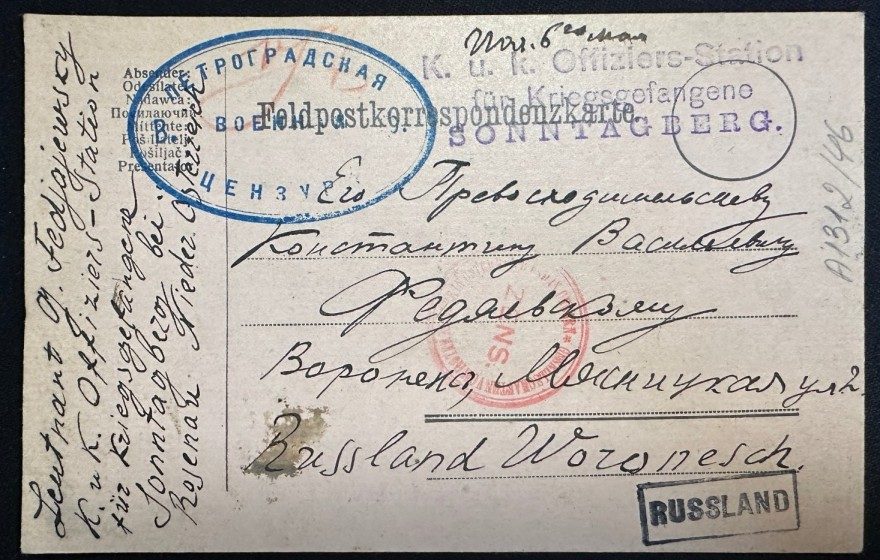 Пол. 6го мая
K. u. k. Offiziers-Station
für Kriegsgefangene
SONNTAGBERG.
Feldpostkorrespondenzkarte.
ПЕТРОГРАДСКАЯ
ВОЕННАЯ
ЦЕНЗУРА
Absender:
Nadawca:
Посылающій
Mittente:
Pošiljač:
Его Превосходительству
Константину Васильевичу
Федяевскому
Воронеж, Мясницкая ул 2.
Russland Woronesch.
RUSSLAND
ZENS.
A1312/46
Leutnant G. Fedjajewsky
K. u K. Offiziers-Station
für Kriegsgefangene
Sonntagberg bei
Rosenau Nieder Österreich